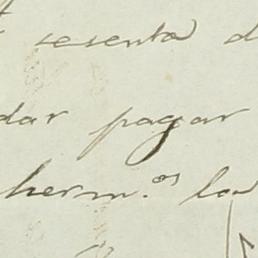 sesenta d
dar pagar
herm.os los